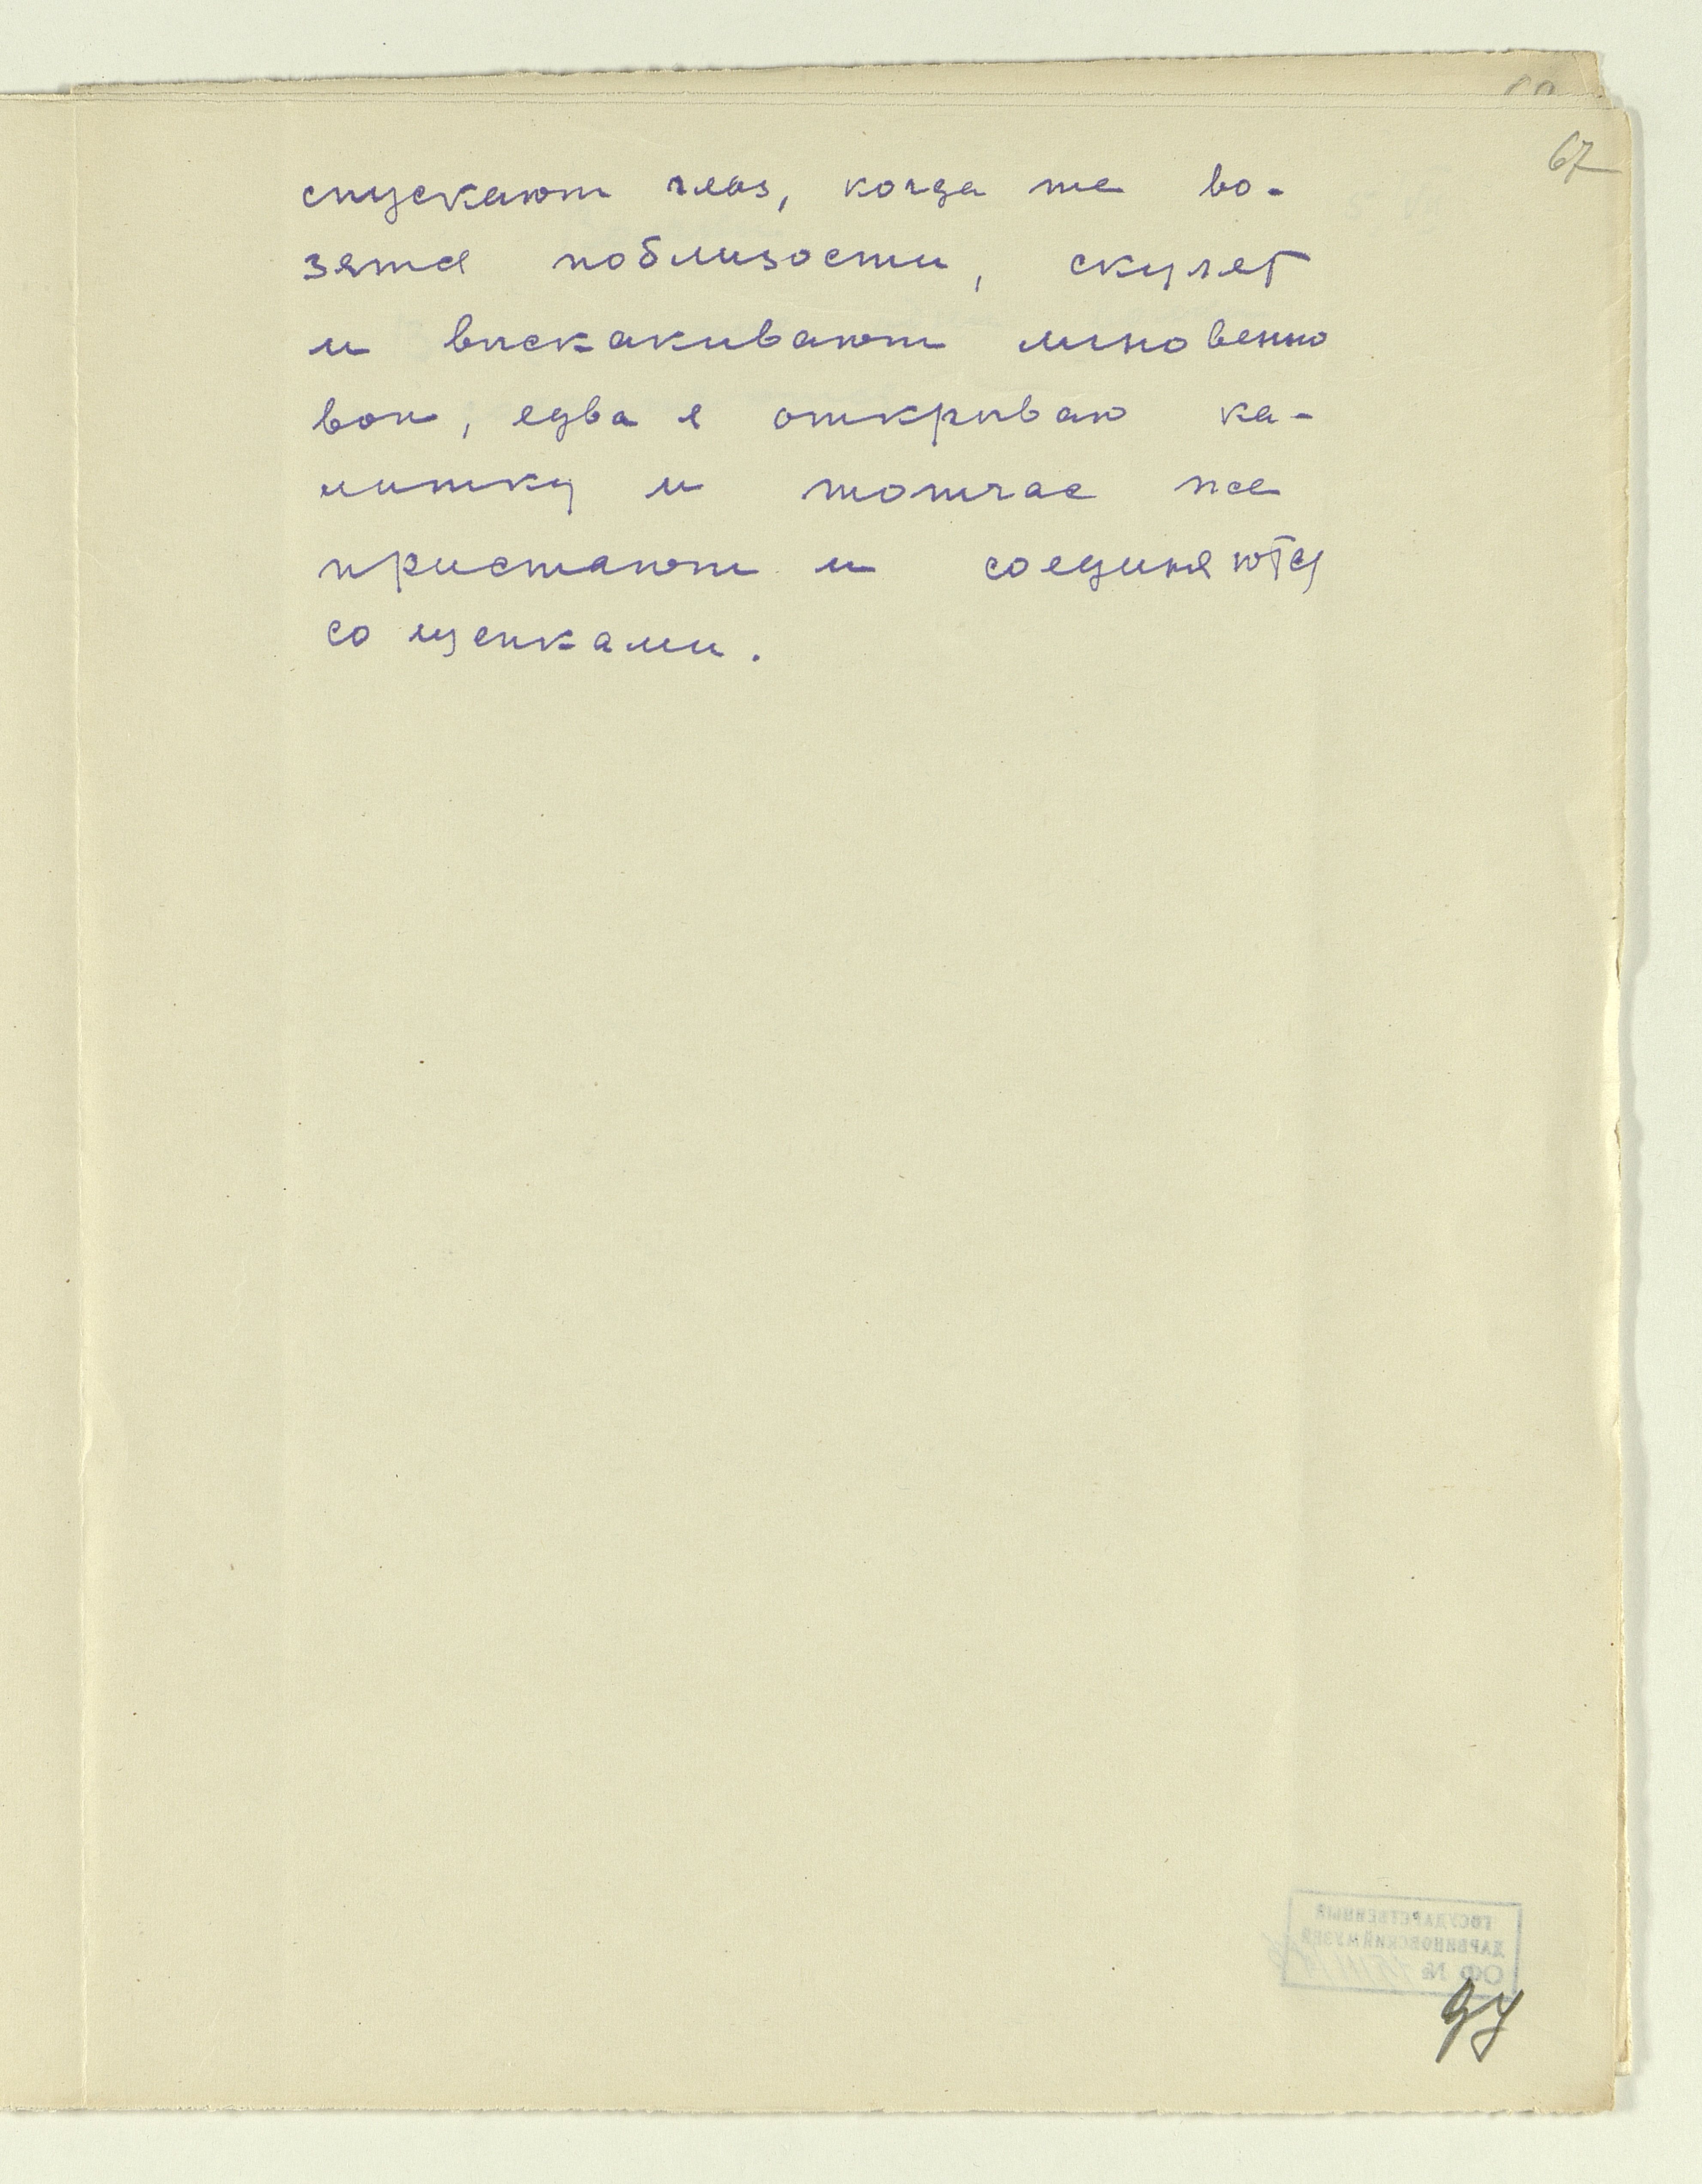 67
спускают глаз, когда те во-
зятся поблизости, скулят
и выскакивают мгновенно
вон, едва я открываю ка-
литку и тотчас же
пристают и соединяются
со щенками.
ГОСУДАРСТВЕННЫЙ
ДАРВИНОВСКИЙ МУЗЕЙ
ОФ №
97